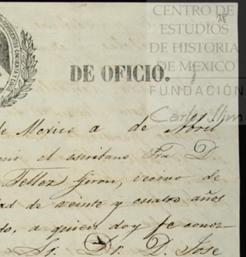 CENTRO DE
ESTUDIOS
DE HISTORIA
DE MEXICO
FUNDACIÓN
Carlos Slim
DE OFICIO.
de Mexico a de Abril
el escribano D.
Tellez Giron, vecino de
de veinte y cuatro años
to, a quien doy fe conoz-
Sr. Dr. D. Jose